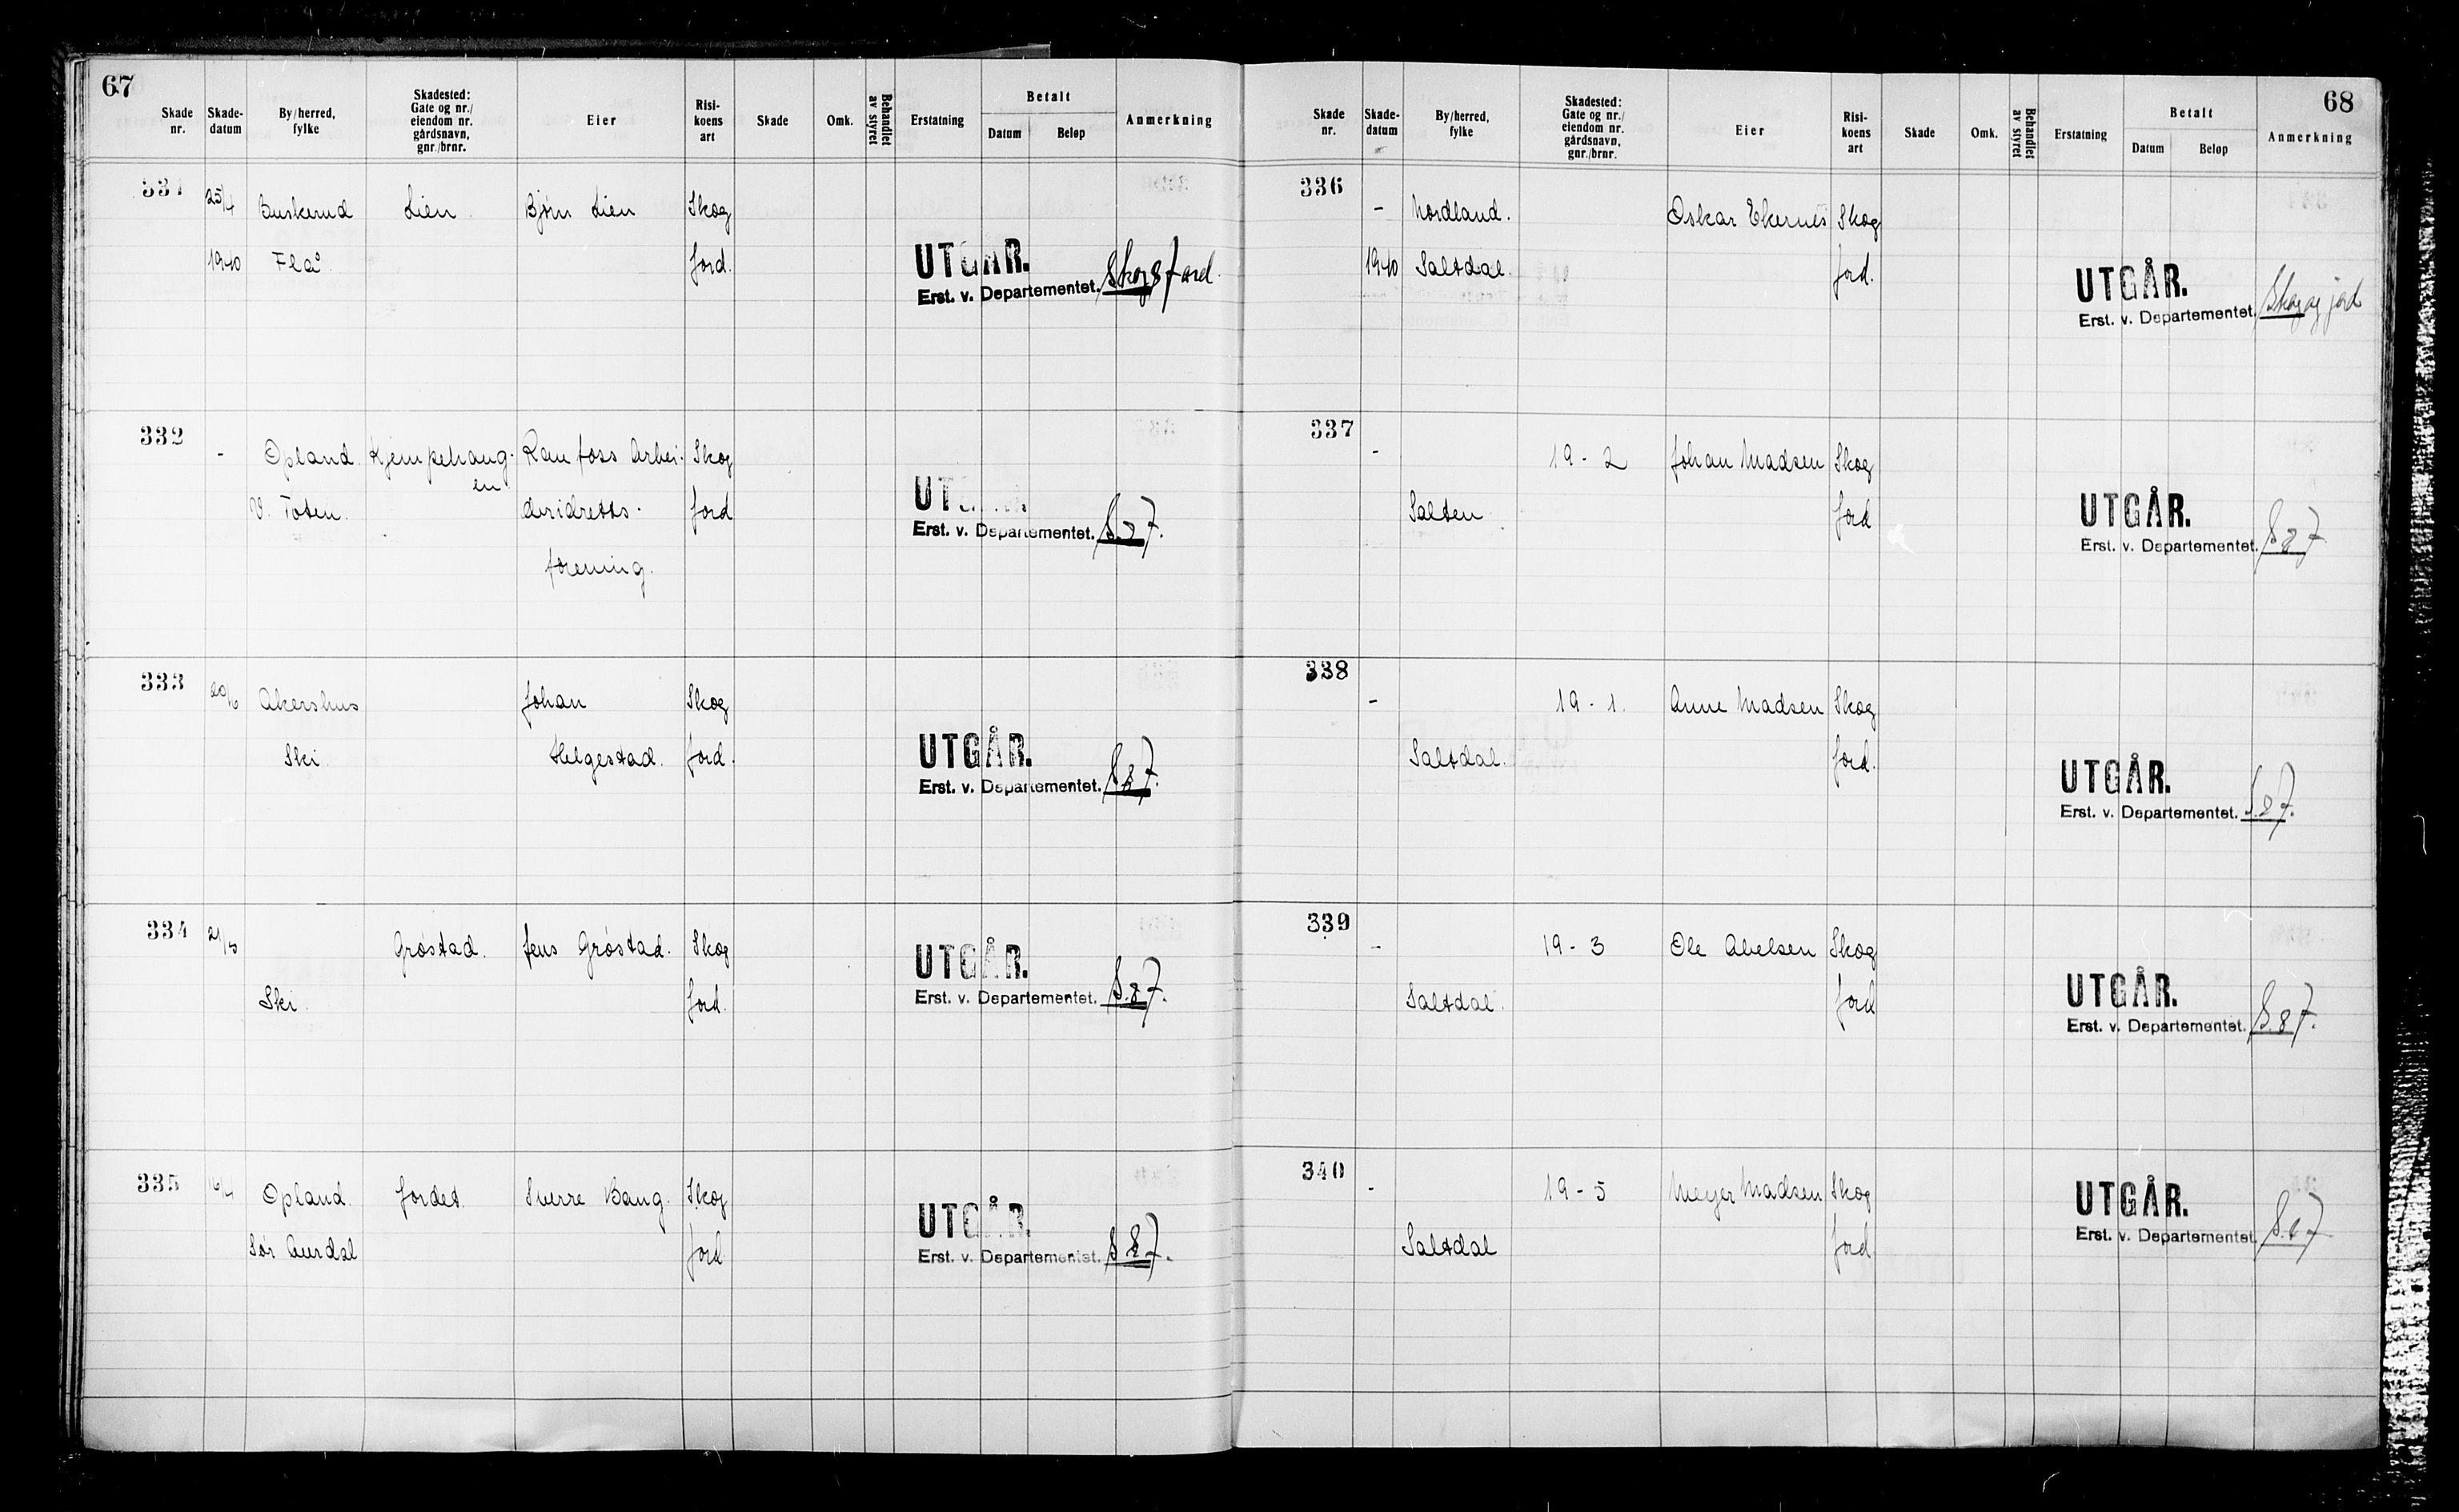 67
Skade nr.	Skade-datum	By/herred, fylke	Skadested: Gate og nr./ eiendom nr. gårdsnavn, gnr./brnr.	Eier	Risi-koens art	Skade	Omk.	Behandlet av styret	Erstatning	Betalt Datum	Beløp	Anmerkning
331	25/4	Buskerud	Lien.	Bjørn Lien	Skog
1940	Flå.	Jord.
UTGÅR.
Erst. v. Departementet. Skog & Jord.
332	-	Opland.	Kjempehaug-	Raufoss Arbei-	Skog
en
V. Toten.	deridretts-	Jord
forening.
UTGÅR.
Erst. v. Departementet. S. & J.
333	20/6	Akershus	Johan	Skog
Ski.	Helgestad.	Jord.
UTGÅR.
Erst. v. Departementet. S & J.
334	Grøstad.	Jens Grøstad.	Skog
Ski.	Jord.
UTGÅR.
Erst. v. Departementet. S. & J.
335	16/4	Opland.	Jordet.	Sverre Bang.	Skog
Sør Aurdal	Jord
UTGÅR.
Erst. v. Departementet. S & J.
68
Skade nr.	Skade-datum	By/herred, fylke	Skadested: Gate og nr./ eiendom nr. gårdsnavn, gnr./brnr.	Eier	Risi-koens art	Skade	Omk.	Behandlet av styret	Erstatning	Betalt Datum	Beløp	Anmerkning
336	-	Nordland.	Oskar Ekernes	Skog
1940	Saltdal.	Jord.
UTGÅR.
Erst. v. Departementet. Skog og jord
337	-	19 - 2	Johan Madsen	Skog
Salten	Jord
UTGÅR.
Erst. v. Departementet. S & J
338	-	19 - 1.	Anne Madsen	Skog
Saltdal.	Jord.
UTGÅR.
Erst. v. Departementet. S. & J.
339	-	19 - 3	Ole Abelsen	Skog
Saltdal.	Jord
UTGÅR.
Erst. v. Departementet. S. & J.
340	-	19 - 5	Meyer Madsen	Skog
Saltdal	Jord
UTGÅR.
Erst. v. Departementet. S. & J